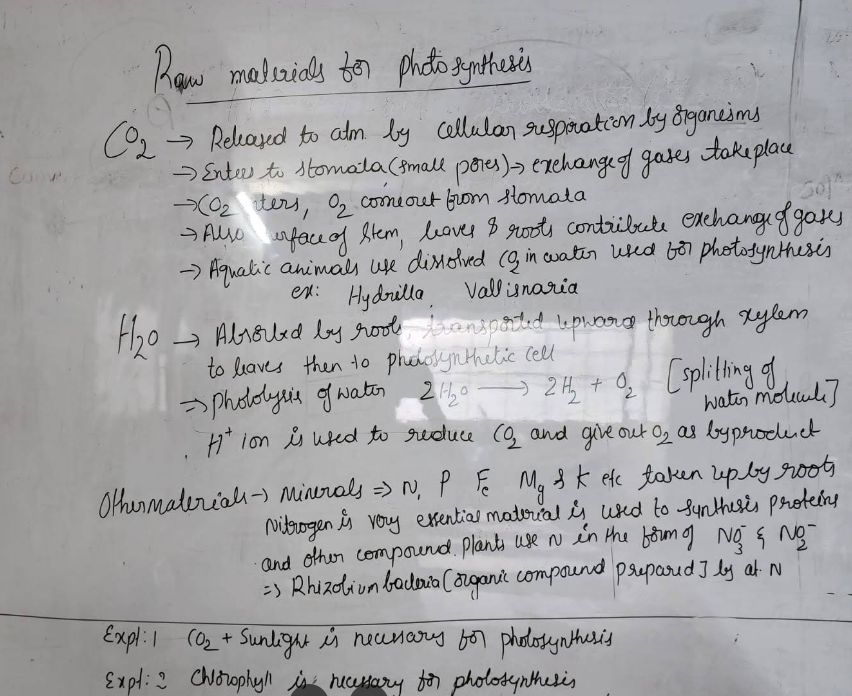 Raw materials for photosynthesis
CO2 → Released to atm. by cellular respiration by organisms
→ Enters to stomata (small pores) → exchange of gases take place
→ CO2 ters, O2 comeout from stomata
→ Also urface of stem, leaves & roots contribute exchange of gases
→ Aquatic animals use dissolved CO2 in water used for photosynthesis
ex: Hydrilla, Vallisnaria
H2O → Absorbed by roots, transported upward through xylem
to leaves then to photosynthetic cell
⇒ photolysis of water 2H2O → 2H2 + O2 [splitting of
water molecule]
H+ ion is used to reduce CO2 and give out O2 as byproduct
Other materials → Minerals ⇒ N, P Fe Mg & K etc taken up by roots
Nitrogen is very essential material is used to synthesis proteins
and other compound. Plants use N in the form of NO3- & NO2-
⇒ Rhizobium bacteria [organic compound prepared] by at. N
Expt: 1 CO2 + Sunlight is necessary for photosynthesis
Expt: 2 Chlorophyll is necessary for photosynthesis